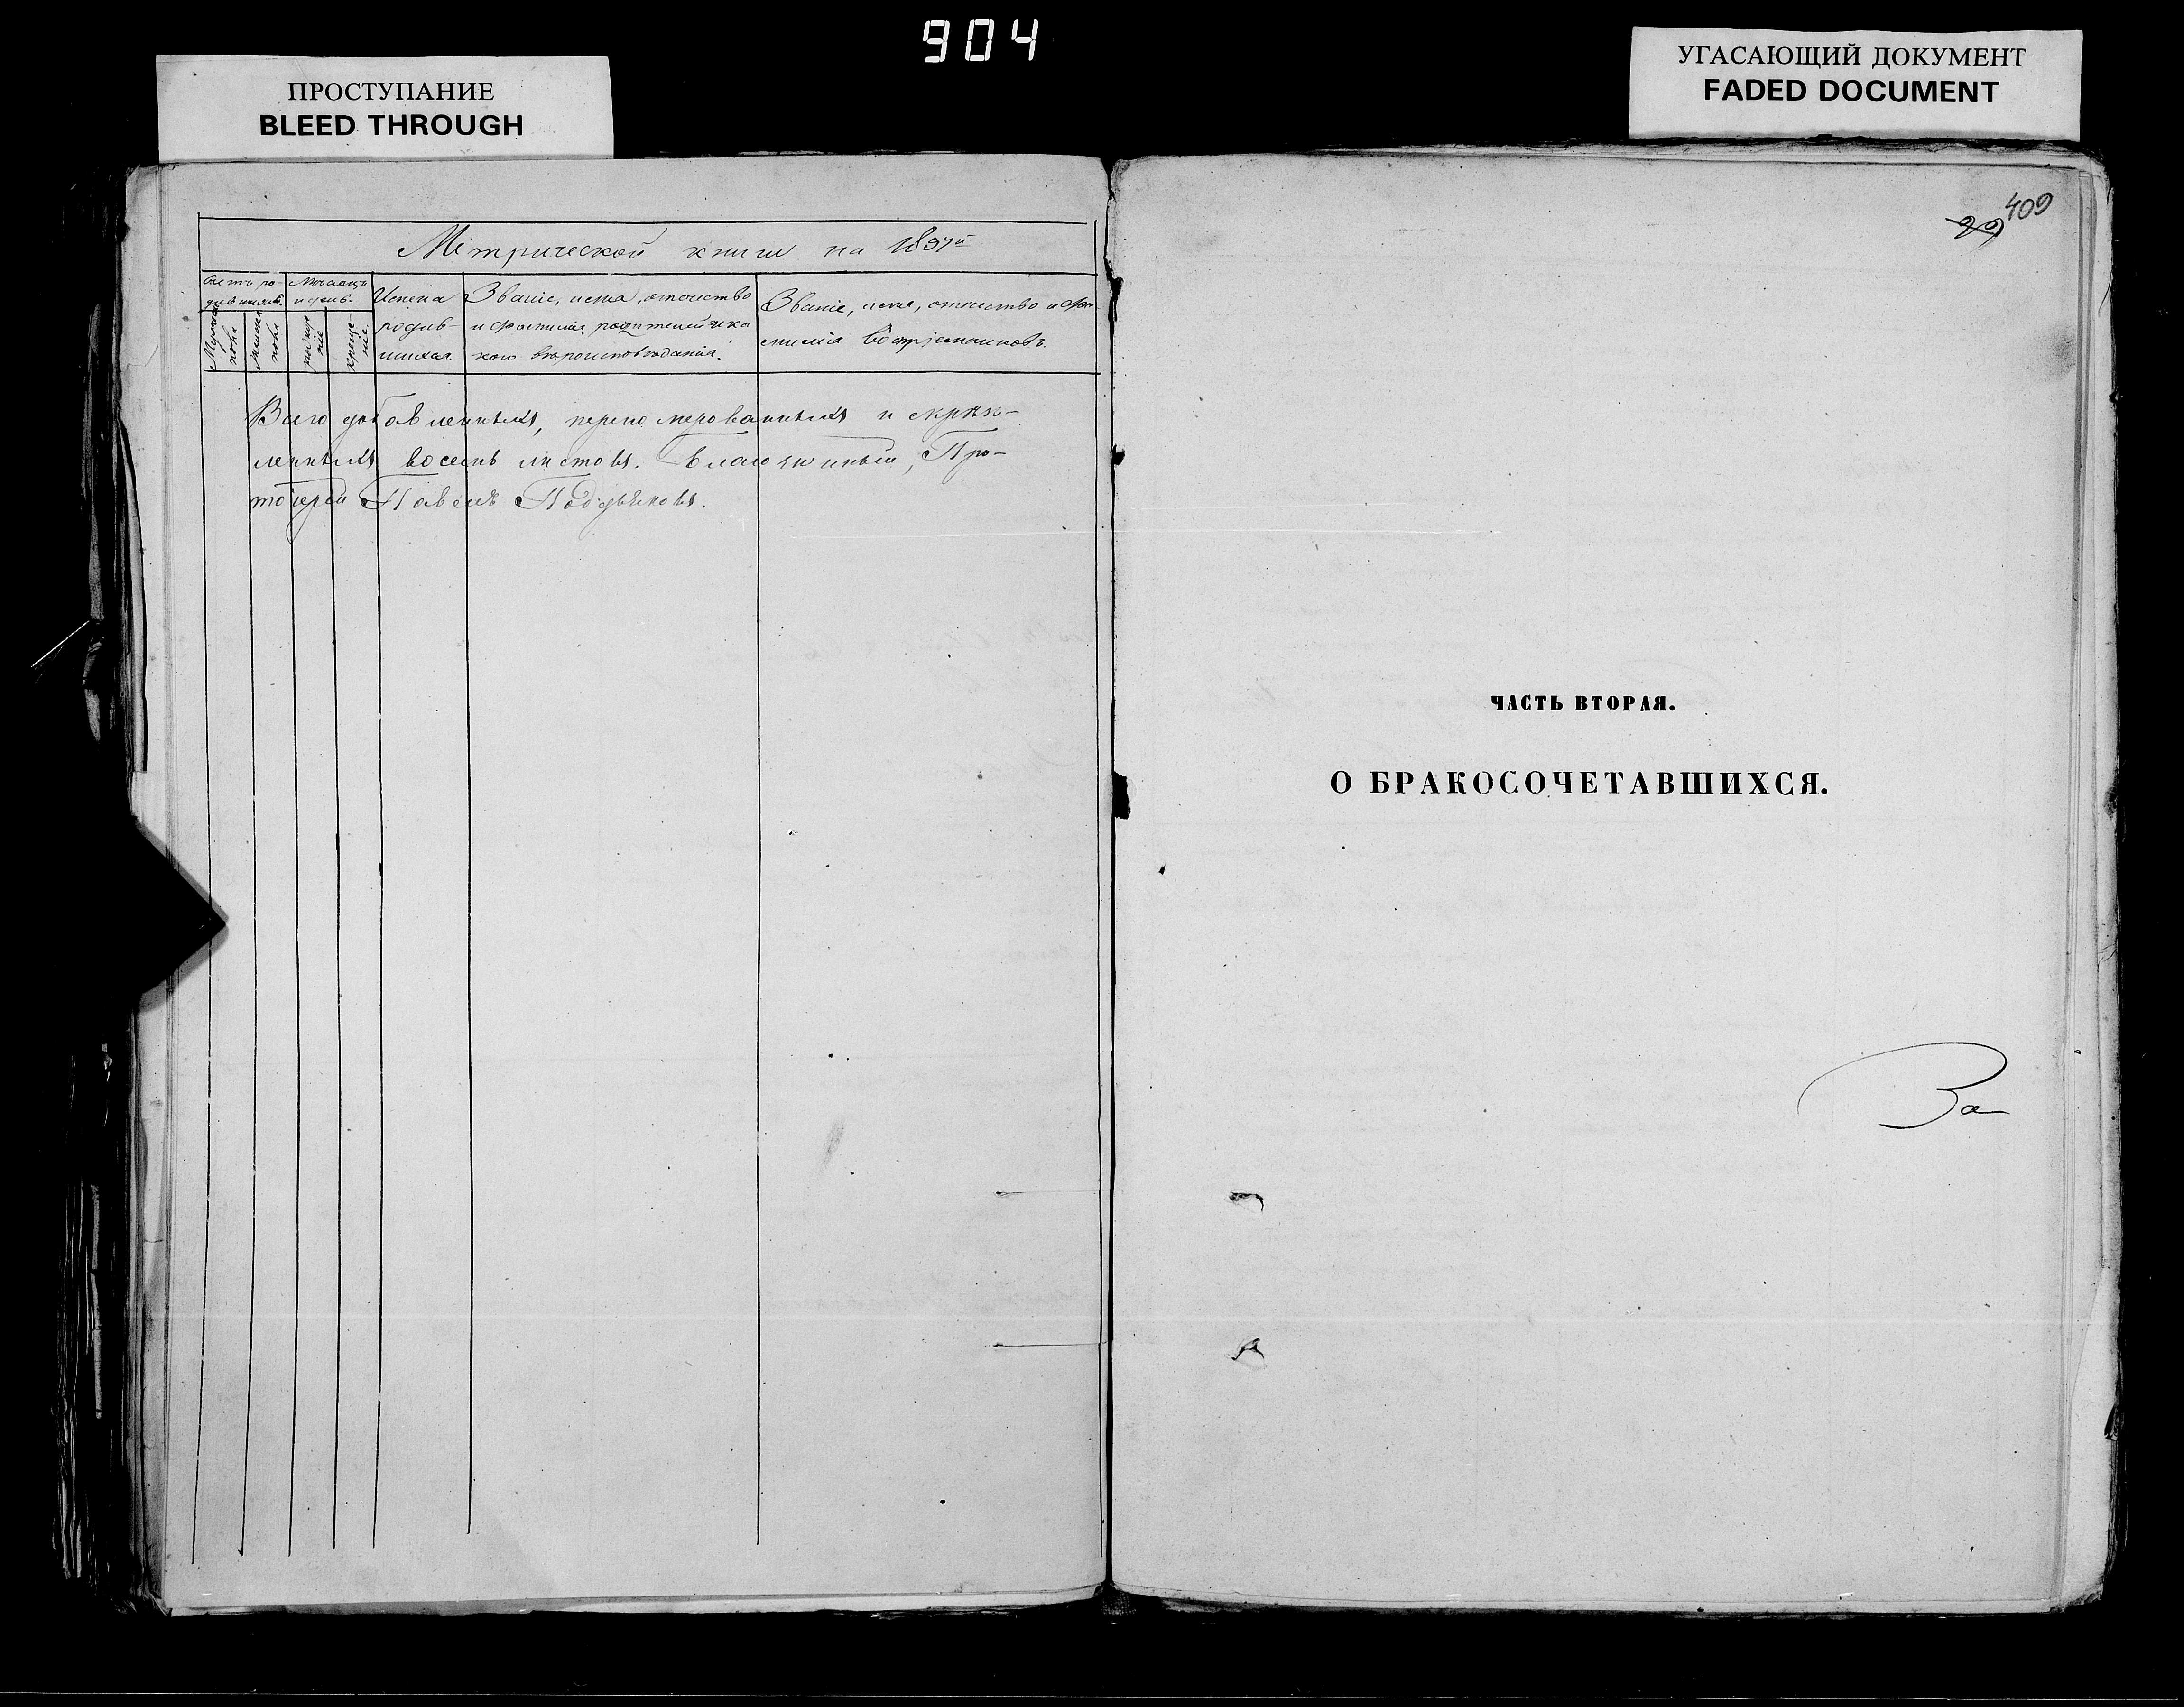 904
ПРОСТУПАНИЕ
BLEED THROUGH
УГАСАЮЩИЙ ДОКУМЕНТ
FADED DOCUMENT
Метрической книги на 1897й
Счетъ ро-
дившихся.
Мужеска
пола
Женска
пола
Месяцъ
и день.
рожде
ніе
креще-
ніе.
Имена
родив-
шихся
Званіе, имя, отчество
и фамилія родителей и ка
кого вероисповеданія.
Званіе, имя, отчество и фа-
милія воспріемниковъ.
Всего добавленныхъ, перено мерованныхъ и скреп-
ленныхъ восемь листовъ. Благочинный, Про-
тоіерей Павелъ Поддьяковъ.
409
ЧАСТЬ ВТОРАЯ.
О БРАКОСОЧЕТАВШИХСЯ.
За